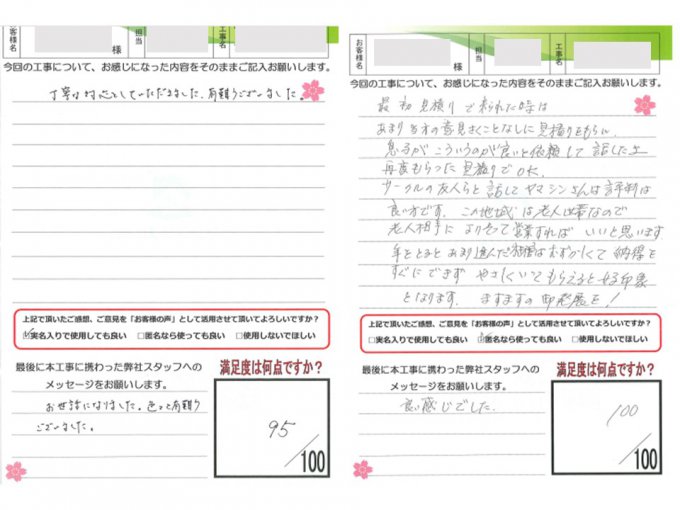 お客様名
様
担当
工事名
今回の工事について、お感じになった内容をそのままご記入お願いします。
丁寧な対応をしていただきました。有難うございました。
上記で頂いたご感想、ご意見を「お客様の声」として活用させて頂いてよろしいですか？
☑実名入りで使用しても良い □匿名なら使っても良い □使用しないでほしい
最後に本工事に携わった弊社スタッフへの
メッセージをお願いします。
お世話になりました。色々と有難う
ございました。
満足度は何点ですか？
95
/100
お客様名
様
担当
工事名
今回の工事について、お感じになった内容をそのままご記入お願いします。
最初見積りで来られた時は
あまり当方の意見きくことなしに見積りをもらい
息子がこういうのが良いと依頼して話した上
再度もらった見積りでOK.
サークルの友人らと話してヤマシンさんは評判は
良い方です。この地域は老人世帯なので
老人相手によりそって営業すればいいと思います
年をとるとあまり進んだ はむずかしくて納得を
すぐにできず やさしくいてもらえると好印象
となります。ますますの御発展を!
上記で頂いたご感想、ご意見を「お客様の声」として活用させて頂いてよろしいですか？
□実名入りで使用しても良い ☑匿名なら使っても良い □使用しないでほしい
最後に本工事に携わった弊社スタッフへの
メッセージをお願いします。
良い感じでした.
満足度は何点ですか？
100
/100